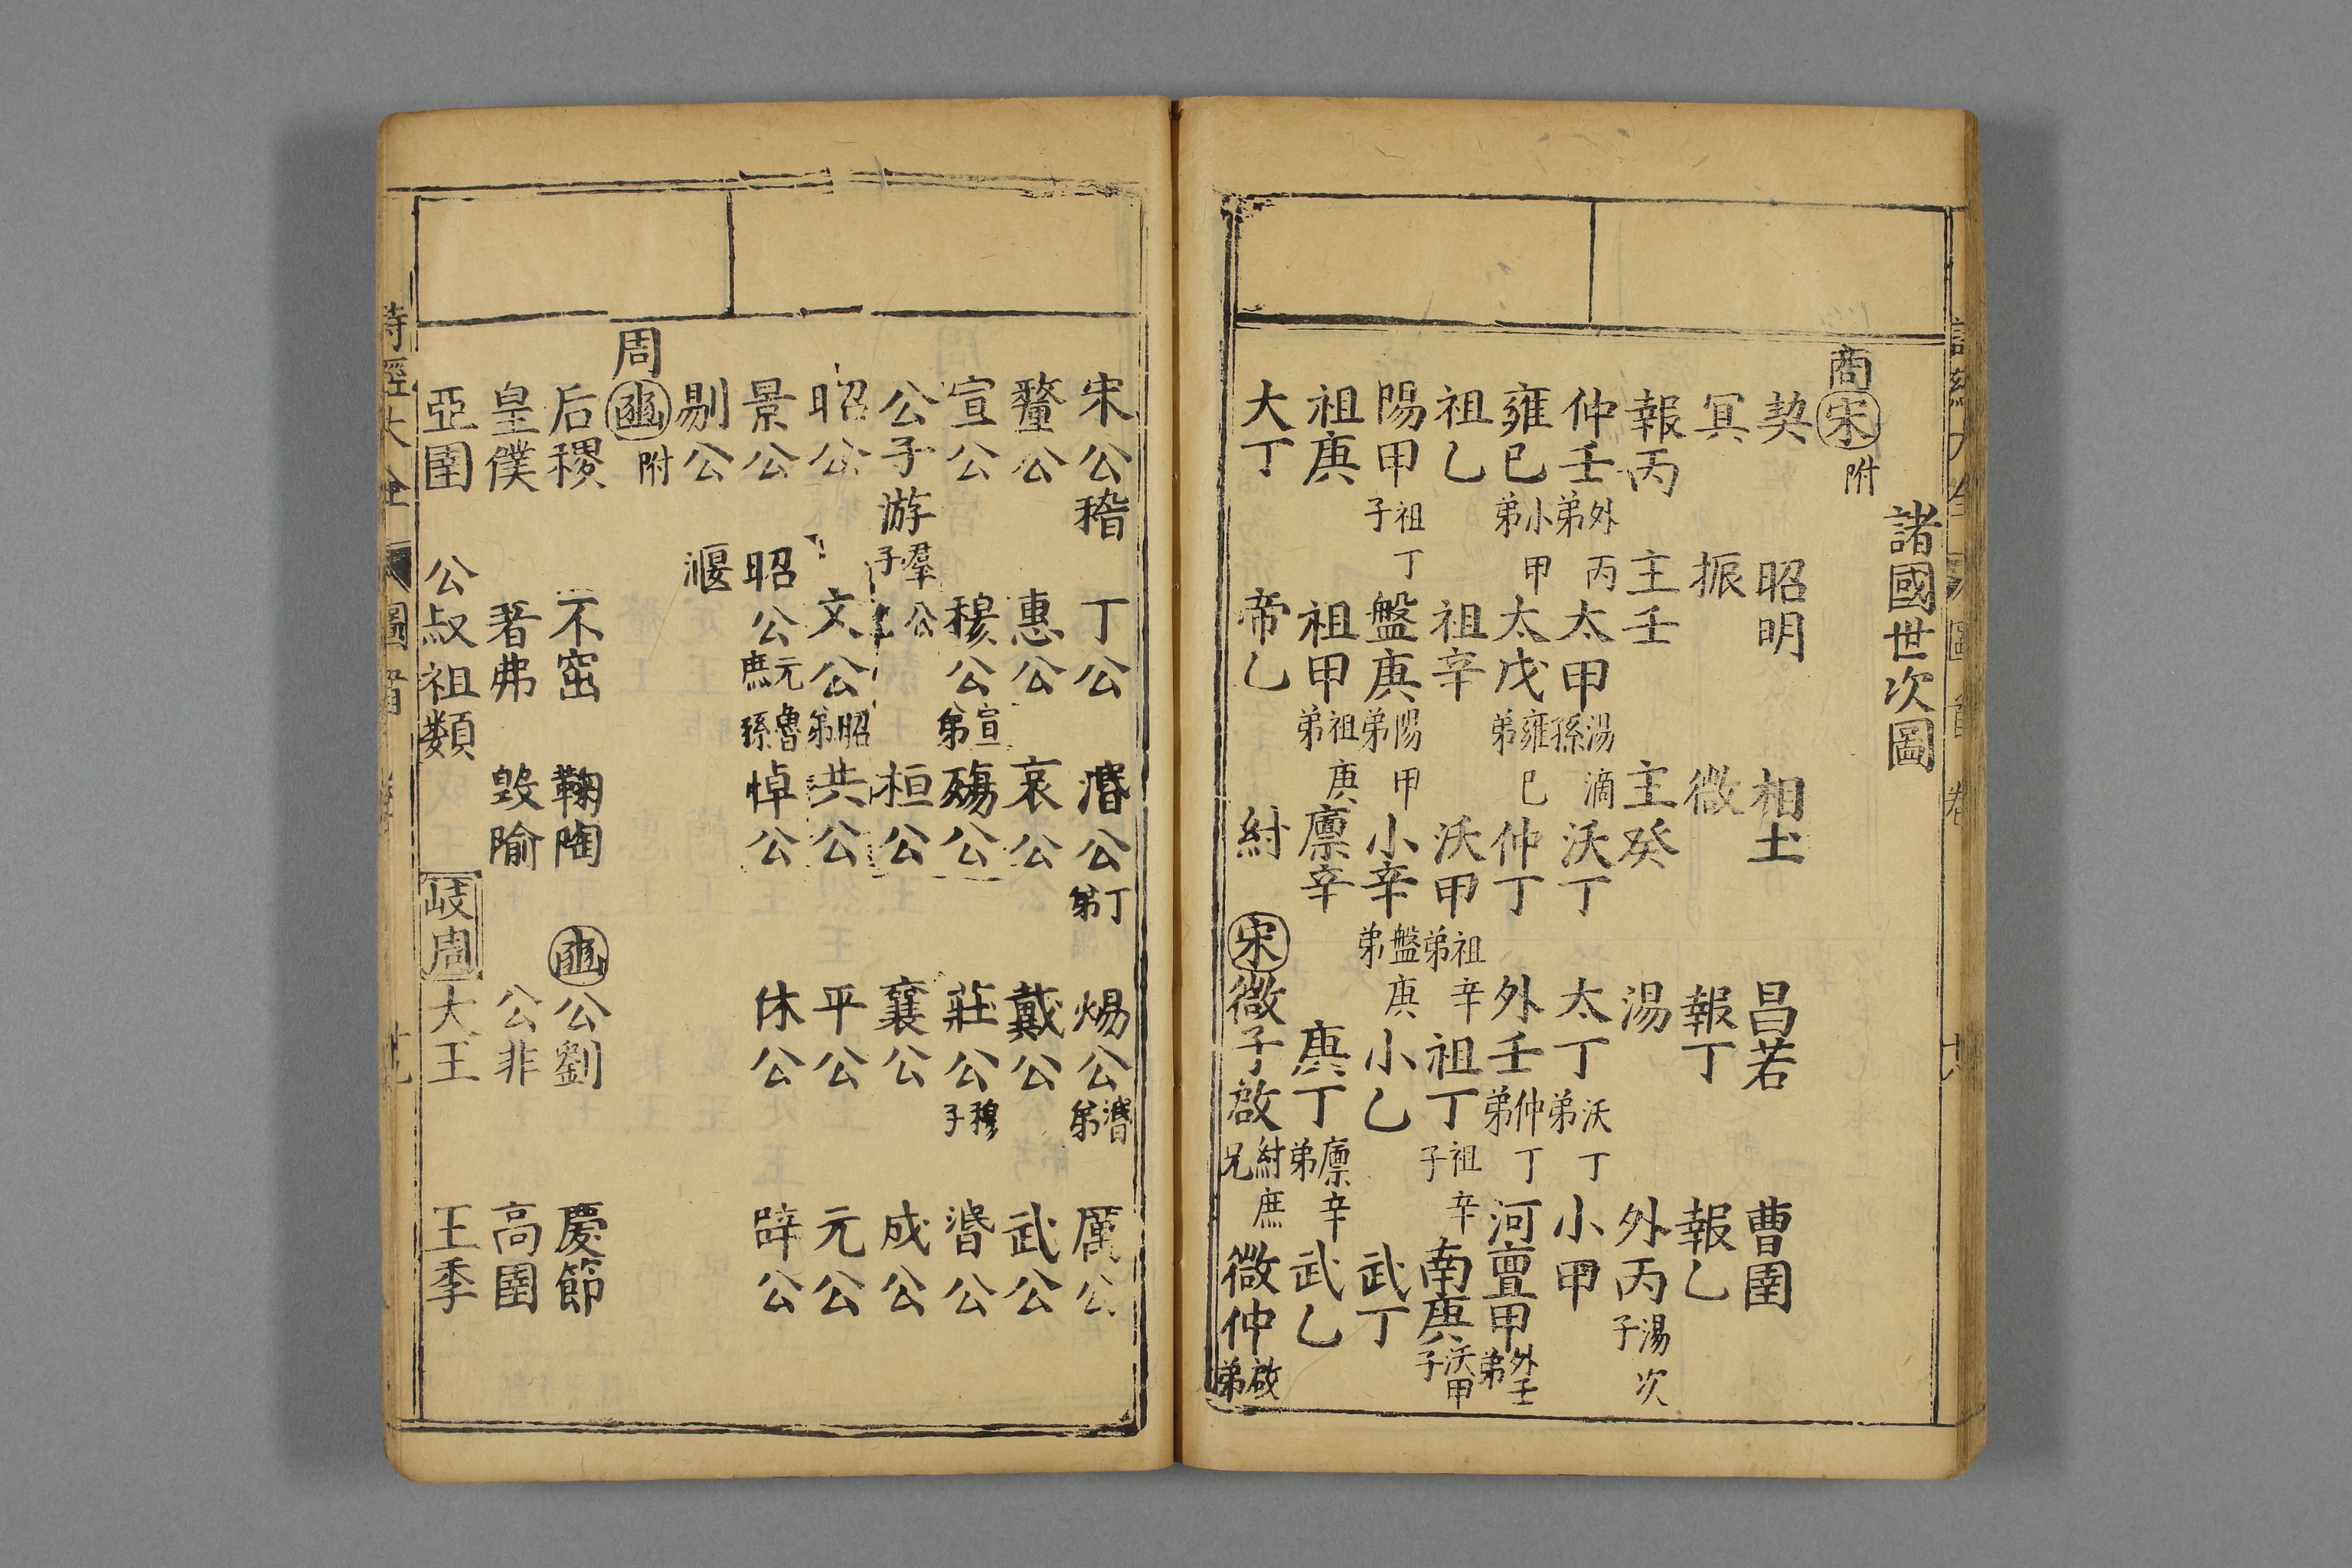 諸國世次圖
商宋附
契 昭明 相土 昌若 曹圉
冥 振 微 報丁 報乙
報丙 主壬 主癸 湯 外丙湯次子
仲壬外丙弟 太甲湯嫡孫 沃丁 太丁沃丁弟 小甲
雍已小甲弟 太戊雍已弟 仲丁 外壬仲丁弟 河亶甲外壬弟
祖乙 祖辛 沃甲祖辛弟 祖丁祖辛子 南庚沃甲子
陽甲祖丁子 盤庚陽甲弟 小辛盤庚弟 小乙 武丁
祖庚 祖甲祖庚弟 廩辛 庚丁廩辛弟 武乙
大丁 帝乙 紂 宋微子啟紂庶兄 微仲啟弟
宋公稽 丁公 湣公丁弟 煬公湣弟 厲公
釐公 惠公 哀公 戴公 武公
宣公 穆公宣弟 殤公 莊公穆子 湣公
公子游羣公子 桓公 襄公 成公
昭公 文公昭弟 共公 平公 元公
景公 昭公元庶魯孫 悼公 休公 辟公
剔公 偃
周豳附
后稷 不窋 鞠陶 豳公劉 慶節
皇僕 差弗 毀隃 公非 高圉
亞圉 公叔祖類 岐周大王 王季
詩經大全 圖 卷